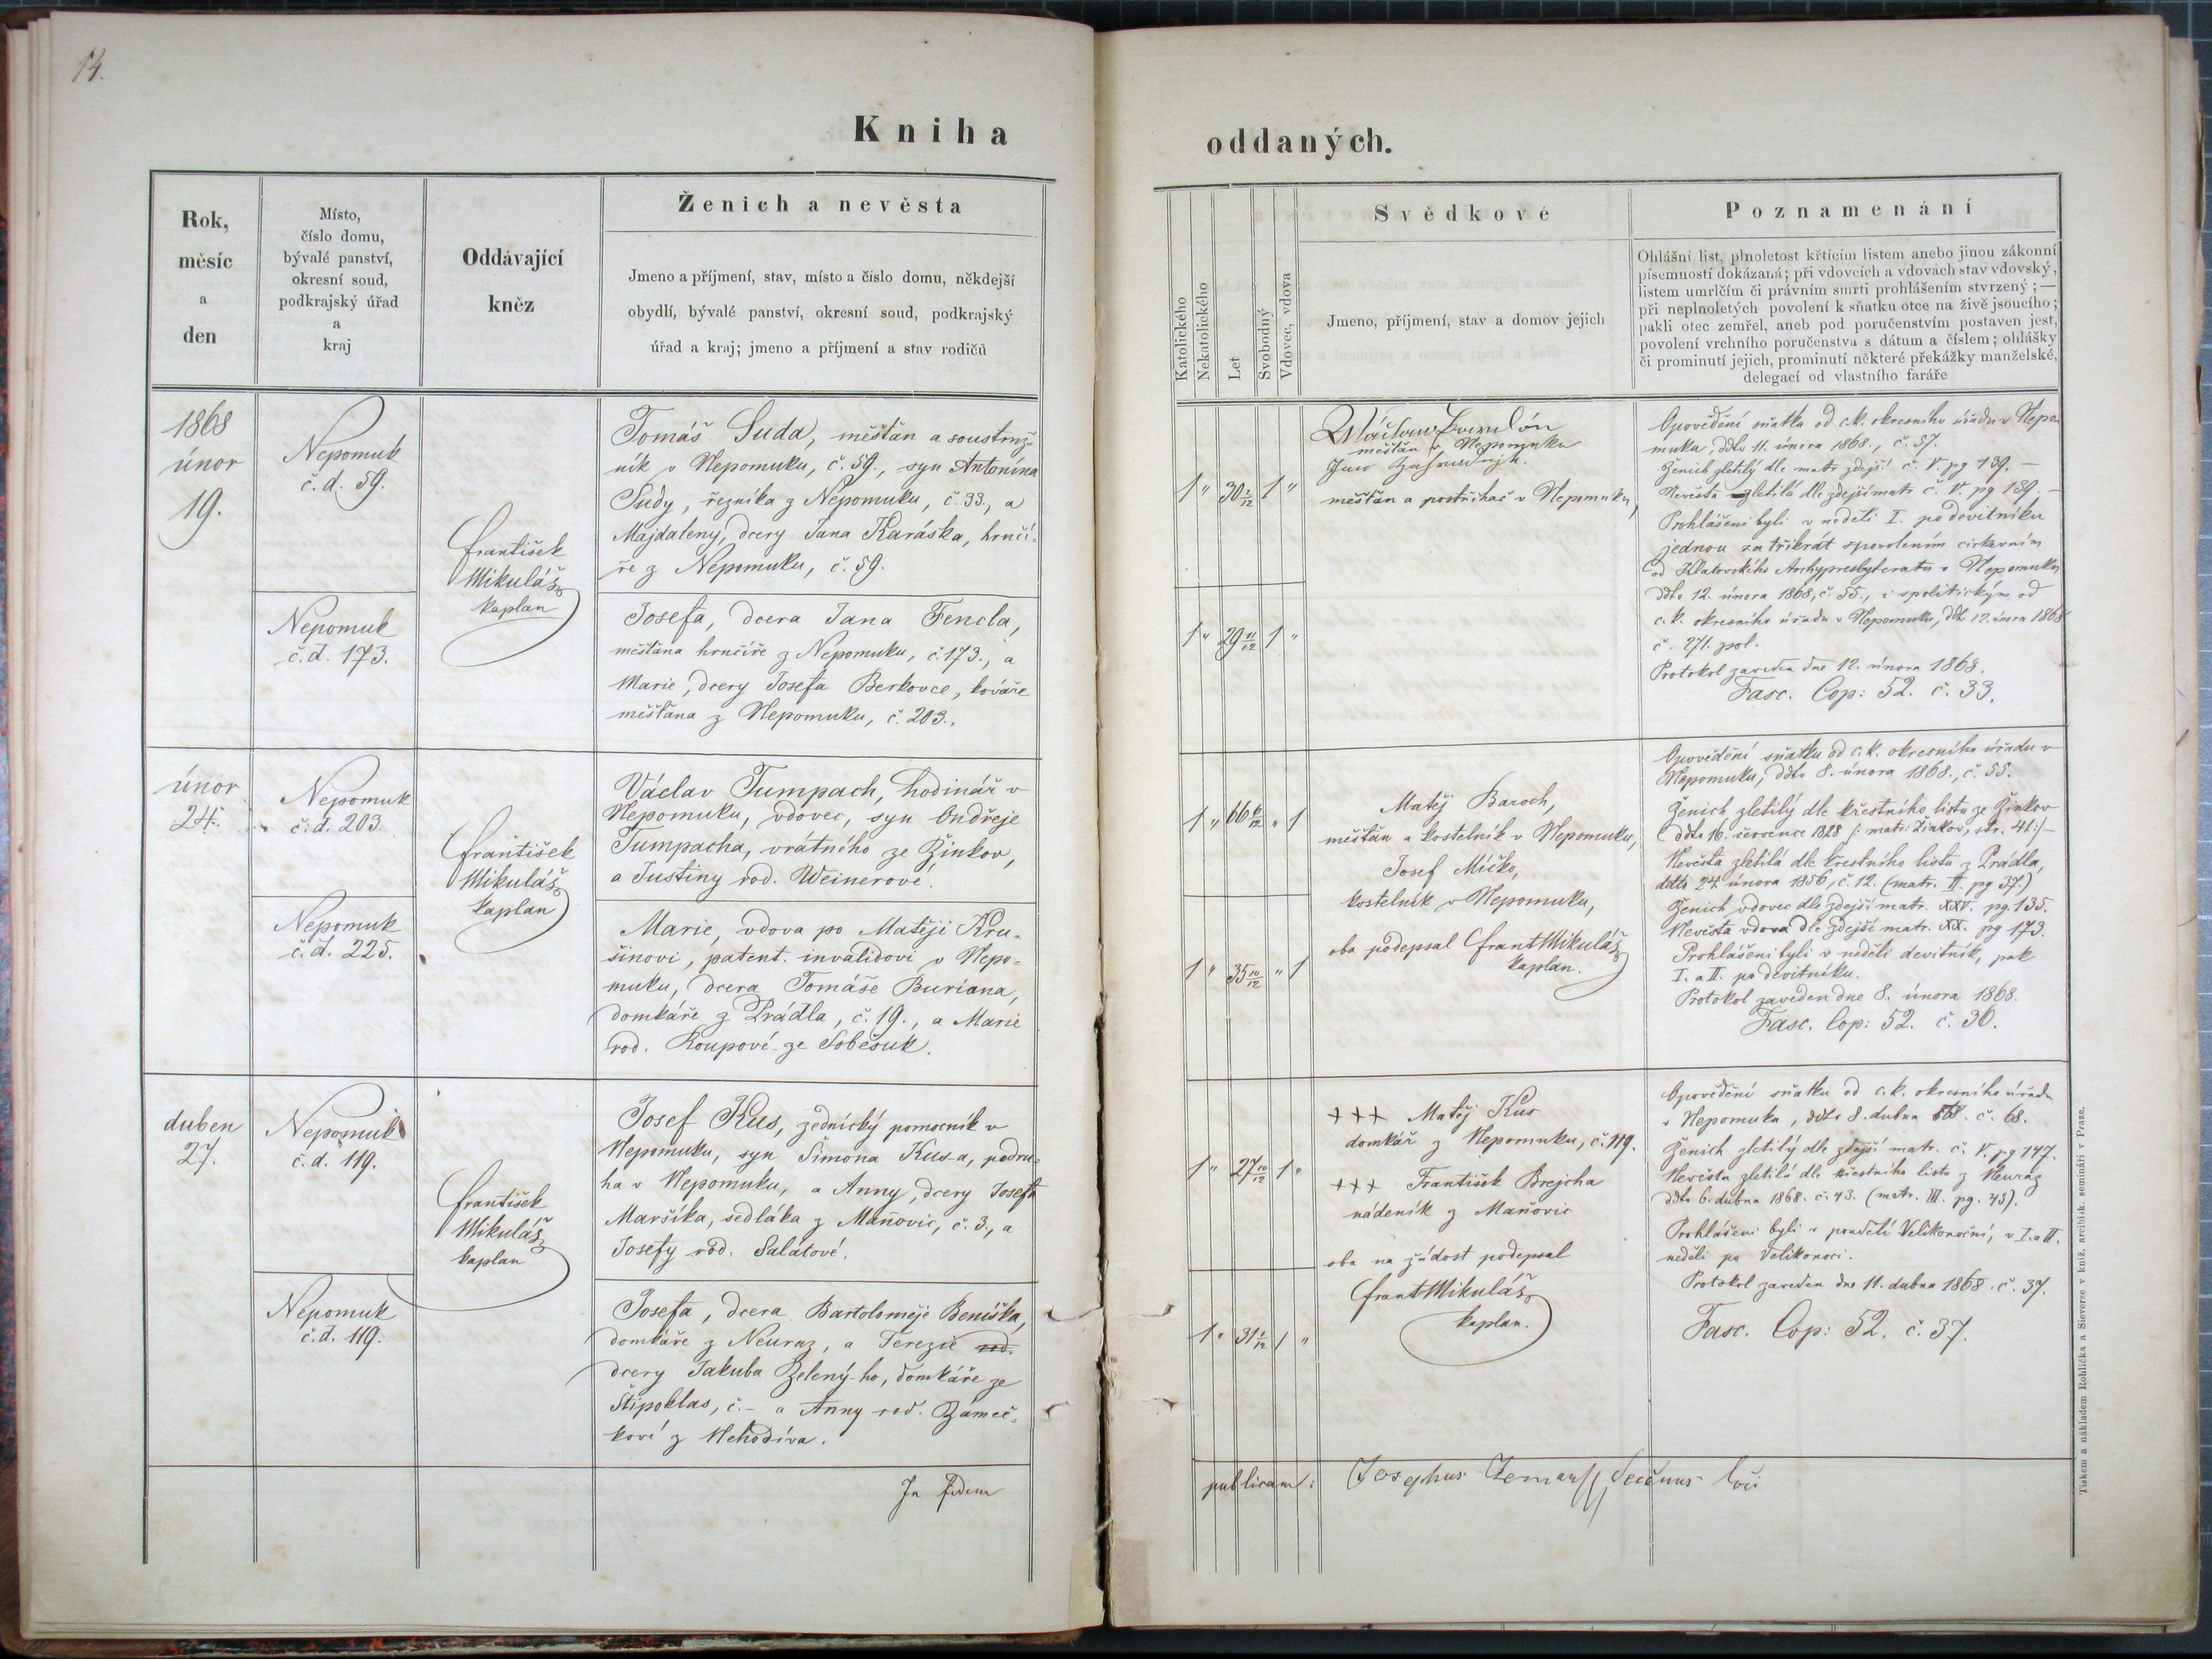 14.
Kniha
oddaných.
Rok,
měsíc
a
den
Místo,
číslo domu,
bývalé panství,
okresní soud,
podkrajský úřad
a
kraj
Oddávající
kněz
Ženich a nevěsta
Jmeno a příjmení, stav, místo a číslo domu, někdejší
obydlí, bývalé panství, okresní soud, podkrajský
úřad a kraj; jmeno a příjmení a stav rodičů
Katolického
Nekatolického
Let
Svobodný
Vdovec, vdova
Svědkové
Jmeno, příjmení, stav a domov jejich
Poznamenání
Ohlášní list, plnoletost křtícím listem anebo jinou zákonní
písemností dokázaná; při vdovcích a vdovách stav vdovský,
listem umrlčím či právním smrti prohlášením stvrzený;—
při neplnoletých povolení k sňatku otce na živě jsoucího;
pakli otec zemřel, aneb pod poručenstvím postaven jest,
povolení vrchního poručenstva s dátum a číslem; ohlášky
či prominutí jejich, prominutí některé překážky manželské,
delegací od vlastního faráře
1868
únor
19.
Nepomuk
č.d. 59.
Nepomuk
č.d. 173.
František
Mikuláš
kaplan
Tomáš Suda, měšťan a soustruž-
ník v Nepomuku, č. 59., syn Antonína
Sudy, řezníka z Nepomuku, č. 33., a
Majdaleny, dcery Jana Karáska, hrnčí-
ře z Nepomuku, č. 59.
Josefa, dcera Jana Fencla,
měšťana hrnčíře z Nepomuku, č. 173., a
Marie, dcery Josefa Berkovce, kováře
měšťana z Nepomuku, č. 203.
1 " 30 2/12 1 "
1 " 29 11/12 1 "
měšťan v Nepomuku
měšťan a postřihač v Nepomuku,
Opovědění sňatku od c.k. okresního úřadu v Nepo
muku, ddto 11. února 1868., č. 57.
Ženich zletilý dle matr zdejší č. V. pg 139. —
Nevěsta zletilá dle zdejší matr č. V. pg 139. —
Prohlášeni byli v neděli I. po devítníku
jednou za třikrát s povolením církevním
od Klatovského Archypresbyteratu v Nepomuku
ddto 12. února 1868, č. 55., i s politickým od
c.k. okresního úřadu v Nepomuku, ddt 12. února 1868
č. 271. pol.
Protokol zaveden dne 12. února 1868.
Fasc. Cop: 52. č. 33.
únor
24.
Nepomuk
č.d. 203.
Nepomuk
č.d. 225.
František
Mikuláš
kaplan
Václav Tumpach, hodinář v
Nepomuku, vdovec, syn Ondřeje
Tumpacha, vrátného ze Žinkov,
a Justiny rod. Weinerové.
Marie, vdova po Matěji Kru-
šinovi, patent. invalidovi v Nepo-
muku, dcera Tomáše Buriana,
domkáře z Prádla, č. 19., a Marie
rod. Loupové ze Soběsuk.
1 " 66 6/12 " 1
1 " 35 10/12 " 1
Matěj Baroch,
měšťan a kostelník v Nepomuku,
Josef Míčko,
kostelník v Nepomuku,
oba podepsal Frant Mikuláš
kaplan.
Opovědění sňatku od c.k. okresního úřadu v
Nepomuku, ddto 8. února 1868., č. 55.
Ženich zletilý dle křestního listu ze Žinkov
ddto 16. července 1828 /: matr. Žinkov, str. 41:/—
Nevěsta zletilá dle křestního listu z Prádla,
ddto 24. února 1856, č. 12. (matr. II. pg 37.)
Ženich vdovec dle zdejší matr. XXV. pg. 135.
Nevěsta vdova dle zdejší matr. XX. pg 173.
Prohlášeni byli v neděli devítník, pak
I. a II. po devítníku.
Protokol zaveden dne 8. února 1868.
Fasc. Cop: 52. č. 30.
duben
27.
Nepomuk
č.d. 119.
Nepomuk
č.d. 119.
František
Mikuláš
kaplan
Josef Kus, zednický pomocník v
Nepomuku, syn Šimona Kus-a, podru-
ha v Nepomuku, a Anny, dcery Josefa
Maršíka, sedláka z Maňovic, č. 3., a
Josefy rod. Salátové.
Josefa, dcera Bartoloměje Beníška,
domkáře z Neuraz, a Terezie rod.
dcery Jakuba Zelený-ho, domkáře ze
Štipoklas, č. - a Anny rod. Zámeč-
kové z Nehodíva.
1 " 27 10/12 1 "
1 " 31 1/12 1 "
+++ Matěj Kus
domkář z Nepomuku, č. 119.
+++ František Brejcha
nádeník z Maňovic
oba na žádost podepsal
Frant Mikuláš
kaplan.
Opovědění sňatku od c.k. okresního úřadu
v Nepomuku, ddto 8. dubna 868. č. 68.
Ženich zletilý dle zdejší matr. č. V. pg 147.
Nevěsta zletilá dle křestního listu z Neuraz
ddto 6. dubna 1868. č. 43. (matr. III. pg. 45).
Prohlášeni byli v pondělí Velikonoční, v I. a II.
neděli po Velikonoci.
Protokol zaveden dne 11. dubna 1868. č. 37.
Fasc. Cop: 52. č. 37.
In fidem
publicam: Josephus Zeman
Tiskem a nákladem Rohlíčka a Sieverse v kníž. arcibisk. semináři v Praze.